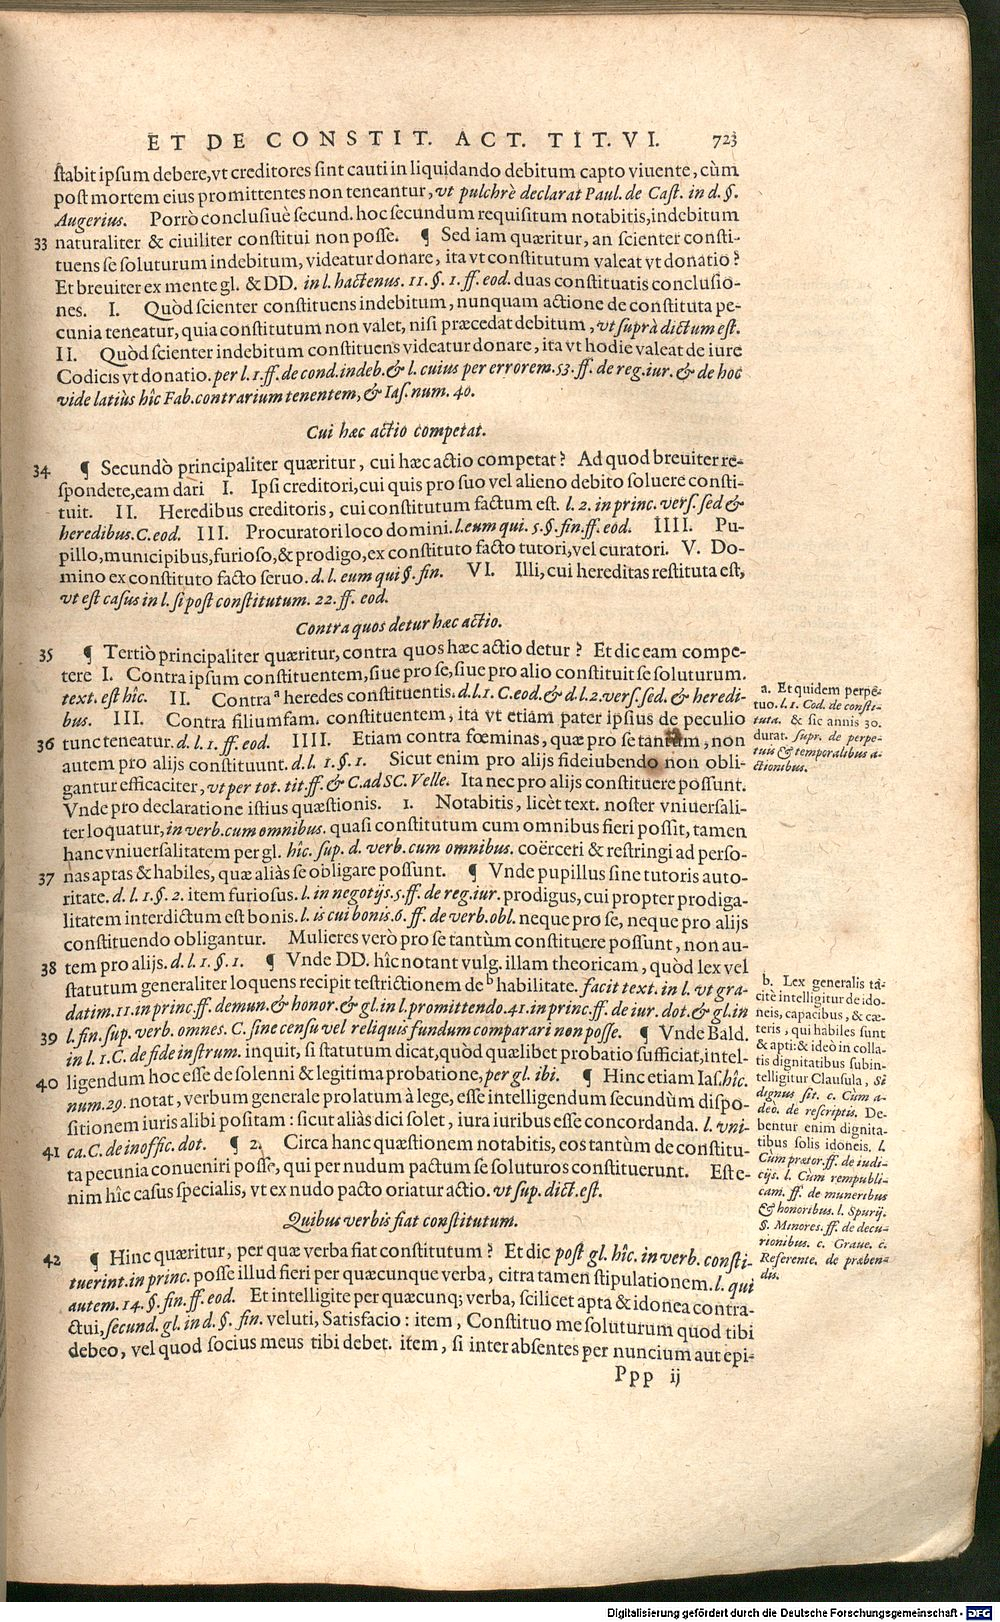 ET DE CONSTIT. ACT. TIT. VI. 723
ſtabit ipſum debere, vt creditores ſint cauti in liquidando debitum capto viuente, cùm
poſt mortem eius promittentes non teneantur, vt pulchrè declarat Paul. de Caſt. in d. §.
Augerius. Porrò concluſiuè ſecund. hoc ſecundum requiſitum notabitis, indebitum
33 naturaliter & ciuiliter conſtitui non poſſe. ¶ Sed iam quæritur, an ſcienter conſti-
tuens ſe ſoluturum indebitum, videatur donare, ita vt conſtitutum valeat vt donatio?
Et breuiter ex mente gl. & DD. in l. hactenus. 11. §. 1. ff. eod. duas conſtituatis concluſio-
nes. I. Quòd ſcienter conſtituens indebitum, nunquam actione de conſtituta pe-
cunia teneatur, quia conſtitutum non valet, niſi præcedat debitum, vt ſuprà dictum eſt.
II. Quòd ſcienter indebitum conſtituens videatur donare, ita vt hodie valeat de iure
Codicis vt donatio. per l. 1. ff. de cond. indeb. & l. cuius per errorem. 53. ff. de reg. iur. & de hoc
vide latiùs hîc Fab. contrarium tenentem, & Iaſ. num. 40.
Cui hæc actio competat.
34 ¶ Secundò principaliter quæritur, cui hæc actio competat? Ad quod breuiter re-
ſpondete, eam dari I. Ipſi creditori, cui quis pro ſuo vel alieno debito ſoluere conſti-
tuit. II. Heredibus creditoris, cui conſtitutum factum eſt. l. 2. in princ. verſ. ſed &
heredibus. C. eod. III. Procuratori loco domini. l. eum qui. 5. §. fin. ff. eod. IIII. Pu-
pillo, municipibus, furioſo, & prodigo, ex conſtituto facto tutori, vel curatori. V. Do-
mino ex conſtituto facto ſeruo. d. l. eum qui §. fin. VI. Illi, cui hereditas reſtituta eſt,
vt eſt caſus in l. ſi poſt conſtitutum. 22. ff. eod.
Contra quos detur hæc actio.
35 ¶ Tertiò principaliter quæritur, contra quos hæc actio detur? Et dic eam compe-
tere I. Contra ipſum conſtituentem, ſiue pro ſe, ſiue pro alio conſtituit ſe ſoluturum.
text. eſt hîc. II. Contra a heredes conſtituentis. d. l. 1. C. eod. & d. l. 2. verſ. ſed. & heredi-
bus. III. Contra filiumfam. conſtituentem, ita vt etiam pater ipſius de peculio
36 tunc teneatur. d. l. 1. ff. eod. IIII. Etiam contra fœminas, quæ pro ſe tantùm, non
autem pro alijs conſtituunt. d. l. 1. §. 1. Sicut enim pro alijs fideiubendo non obli-
gantur efficaciter, vt per tot. tit. ff. & C. ad SC. Velle. Ita nec pro alijs conſtituere poſſunt.
Vnde pro declaratione iſtius quæſtionis. 1. Notabitis, licèt text. noſter vniuerſali-
ter loquatur, in verb. cum omnibus. quaſi conſtitutum cum omnibus fieri poſſit, tamen
hanc vniuerſalitatem per gl. hîc. ſup. d. verb. cum omnibus. coërceri & reſtringi ad perſo-
37 nas aptas & habiles, quæ aliàs ſe obligare poſſunt. ¶ Vnde pupillus ſine tutoris auto-
ritate. d. l. 1. §. 2. item furioſus. l. in negotijs. 5. ff. de reg. iur. prodigus, cui propter prodiga-
litatem interdictum eſt bonis. l. is cui bonis. 6. ff. de verb. obl. neque pro ſe, neque pro alijs
conſtituendo obligantur. Mulieres verò pro ſe tantùm conſtituere poſſunt, non au-
38 tem pro alijs. d. l. 1. §. 1. ¶ Vnde DD. hîc notant vulg. illam theoricam, quòd lex vel
ſtatutum generaliter loquens recipit teſtrictionem de b habilitate. facit text. in l. vt gra-
datim. 11. in princ. ff. de mun. & honor. & gl. in l. promittendo. 41. in princ. ff. de iur. dot. & gl. in
39 l. fin. ſup. verb. omnes. C. ſine cenſu vel reliquis fundum comparari non poſſe. ¶ Vnde Bald.
in l. 1. C. de fide inſtrum. inquit, ſi ſtatutum dicat, quòd quælibet probatio ſufficiat, intel-
40 ligendum hoc eſſe de ſolenni & legitima probatione, per gl. ibi. ¶ Hinc etiam Iaſ. hîc.
num. 29. notat, verbum generale prolatum à lege, eſſe intelligendum ſecundùm diſpo-
ſitionem iuris alibi poſitam: ſicut aliàs dici ſolet, iura iuribus eſſe concordanda. l. vni-
41 ca. C. de inoffic. dot. ¶ 2. Circa hanc quæſtionem notabitis, eos tantùm de conſtitu-
ta pecunia conueniri poſſe, qui per nudum pactum ſe ſoluturos conſtituerunt. Eſt e-
nim hîc caſus ſpecialis, vt ex nudo pacto oriatur actio. vt ſup. dict. eſt.
Quibus verbis fiat conſtitutum.
42 ¶ Hinc quæritur, per quæ verba fiat conſtitutum? Et dic poſt gl. hîc. in verb. conſti-
tuerint. in princ. poſſe illud fieri per quæcunque verba, citra tamen ſtipulationem. l. qui
autem. 14. §. fin. ff. eod. Et intelligite per quæcunq; verba, ſcilicet apta & idonea contra-
ctui, ſecund. gl. in d. §. fin. veluti, Satisfacio: item, Conſtituo me ſoluturum quod tibi
debeo, vel quod ſocius meus tibi debet. item, ſi inter abſentes per nuncium aut epi-
Ppp ij
a. Et quidem perpe-
tuo. l. 1. Cod. de conſti-
tuta. & ſic annis 30.
durat. ſupr. de perpe-
tuis & temporalibus a-
ctionibus.
b. Lex generalis ta-
citè intelligitur de ido-
neis, capacibus, & cæ-
teris, qui habiles ſunt
& apti: & ideò in colla-
tis dignitatibus ſubin-
telligitur Clauſula, Si
dignus ſit. c. Cum a-
deò. de reſcriptis. De-
bentur enim dignita-
tibus ſolis idoneis. l.
Cùm prætor. ff. de iudi-
cijs. l. Cùm rempubli-
cam. ff. de muneribus
& honoribus. l. Spurij.
§. Minores. ff. de decu-
rionibus. c. Graue. c.
Referente. de præben-
dis.
Digitalisierung gefördert durch die Deutsche Forschungsgemeinschaft - DFG